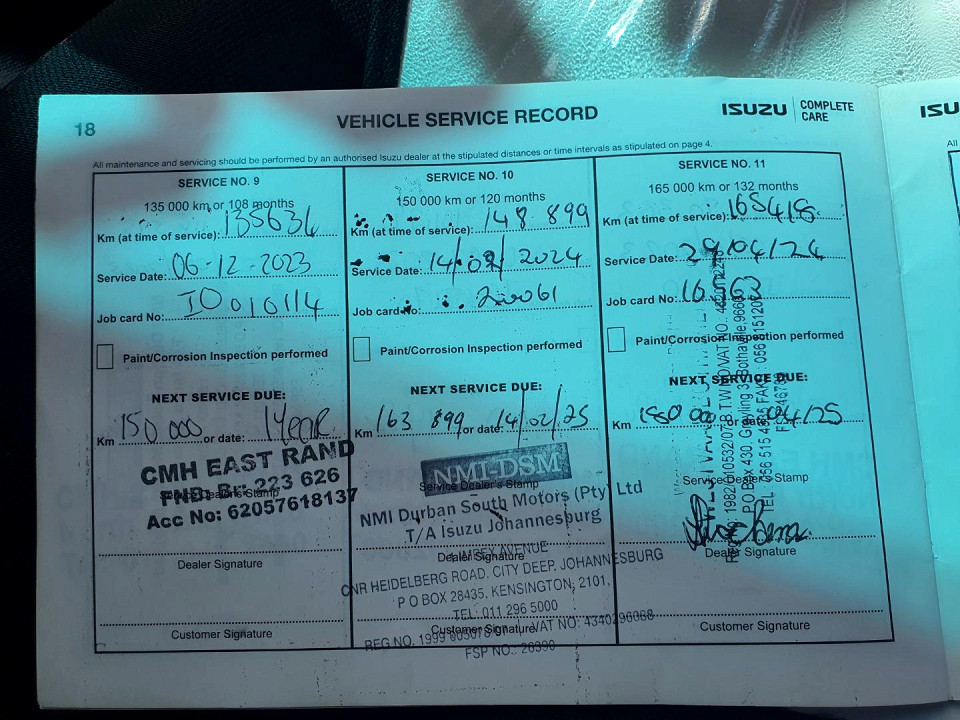 18
VEHICLE SERVICE RECORD
ISUZU COMPLETE CARE
ISU
All maintenance and servicing should be performed by an authorised Isuzu dealer at the stipulated distances or time intervals as stipulated on page 4.
All
SERVICE NO. 9
135 000 km or 108 months
Km (at time of service): 135634
Service Date: 06-12-2023
Job card No: IO010114
Paint/Corrosion Inspection performed
NEXT SERVICE DUE:
Km 150 000 or date: 1 YEAR
CMH EAST RAND
FND. Br: 223 626
Service Dealer's Stamp
Acc No: 62057618137
Dealer Signature
Customer Signature
SERVICE NO. 10
150 000 km or 120 months
Km (at time of service): 148 899
Service Date: 14/02/2024
Job card No:
Paint/Corrosion Inspection performed
NEXT SERVICE DUE:
Km 163 899 or date: 14/02/25
NMI-DSM
Service Dealer's Stamp
NMI Durban South Motors (Pty) Ltd
T/A Isuzu Johannesburg
AVENUE
Dealer Signature
CNR HEIDELBERG ROAD, CITY DEEP, JOHANNESBURG
P O BOX 28435, KENSINGTON, 2101,
TEL: 011 296 5000
Customer Signature
REG NO. VAT NO: 4340296068
FSP NO.: 26390
SERVICE NO. 11
165 000 km or 132 months
Km (at time of service): 165418
Service Date: 29/04/24
Job card No:
Paint/Corrosion Inspection performed
NEXT SERVICE DUE:
Km 180 000 or date: 04/25
Service Dealer's Stamp
Dealer Signature
Customer Signature